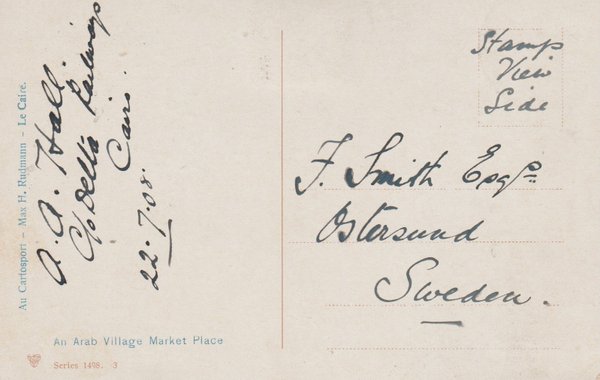 Au Cartosport - Max H. Rudmann - Le Caire.
A. A. Hall.
C/o Delta Railways
Cairo.
22.7.08.
An Arab Village Market Place
Series 1498. 3
Stamps
View
Side
F. Smith Esqre.
Ostersund
Sweden.